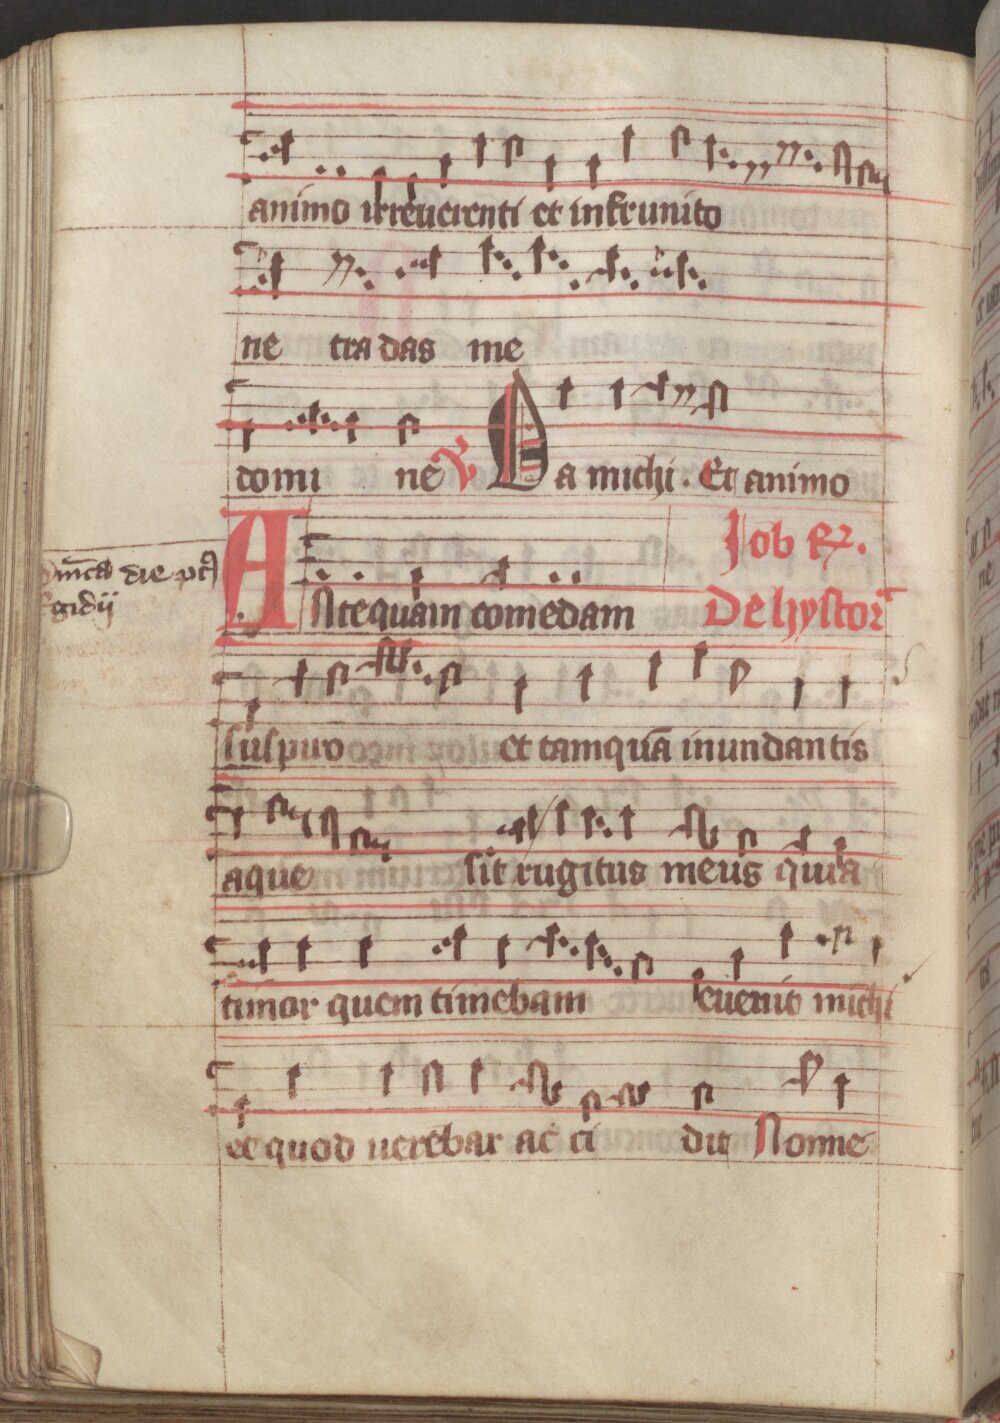 animo irreuerenti et infrunito
ne tradas me
domi ne ℣ Da michi . Et animo
Job ℟.
Antequam comedam De hystor
die pꝰ
gidij
suspiro et tamquā inundantis
aque sit rugitus meus quia
timor quem timebam euenit michi
et quod verebar ac ci dit Nonne